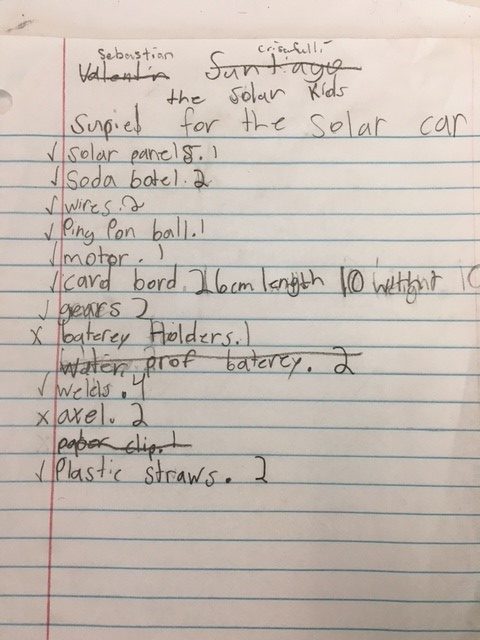 Sebastian crisafulli
Valentin Santiago
the solar Kids
Supied for the solar car
✓ solar panels. 1
✓ Soda botel. 2
✓ wires. 2
✓ Ping Pon ball. 1
✓ motor. 1
✓ card bord. 26cm length 10 hehight 10
✓ gears 2
x baterey Holders. 1
water prof baterey. 2
✓ welds. 4
x axel. 2
paper clip. 1
✓ Plastic straws. 2